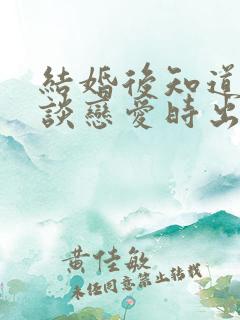 結婚後知道
談戀愛時出
黄佳敏
未经同意禁止转载